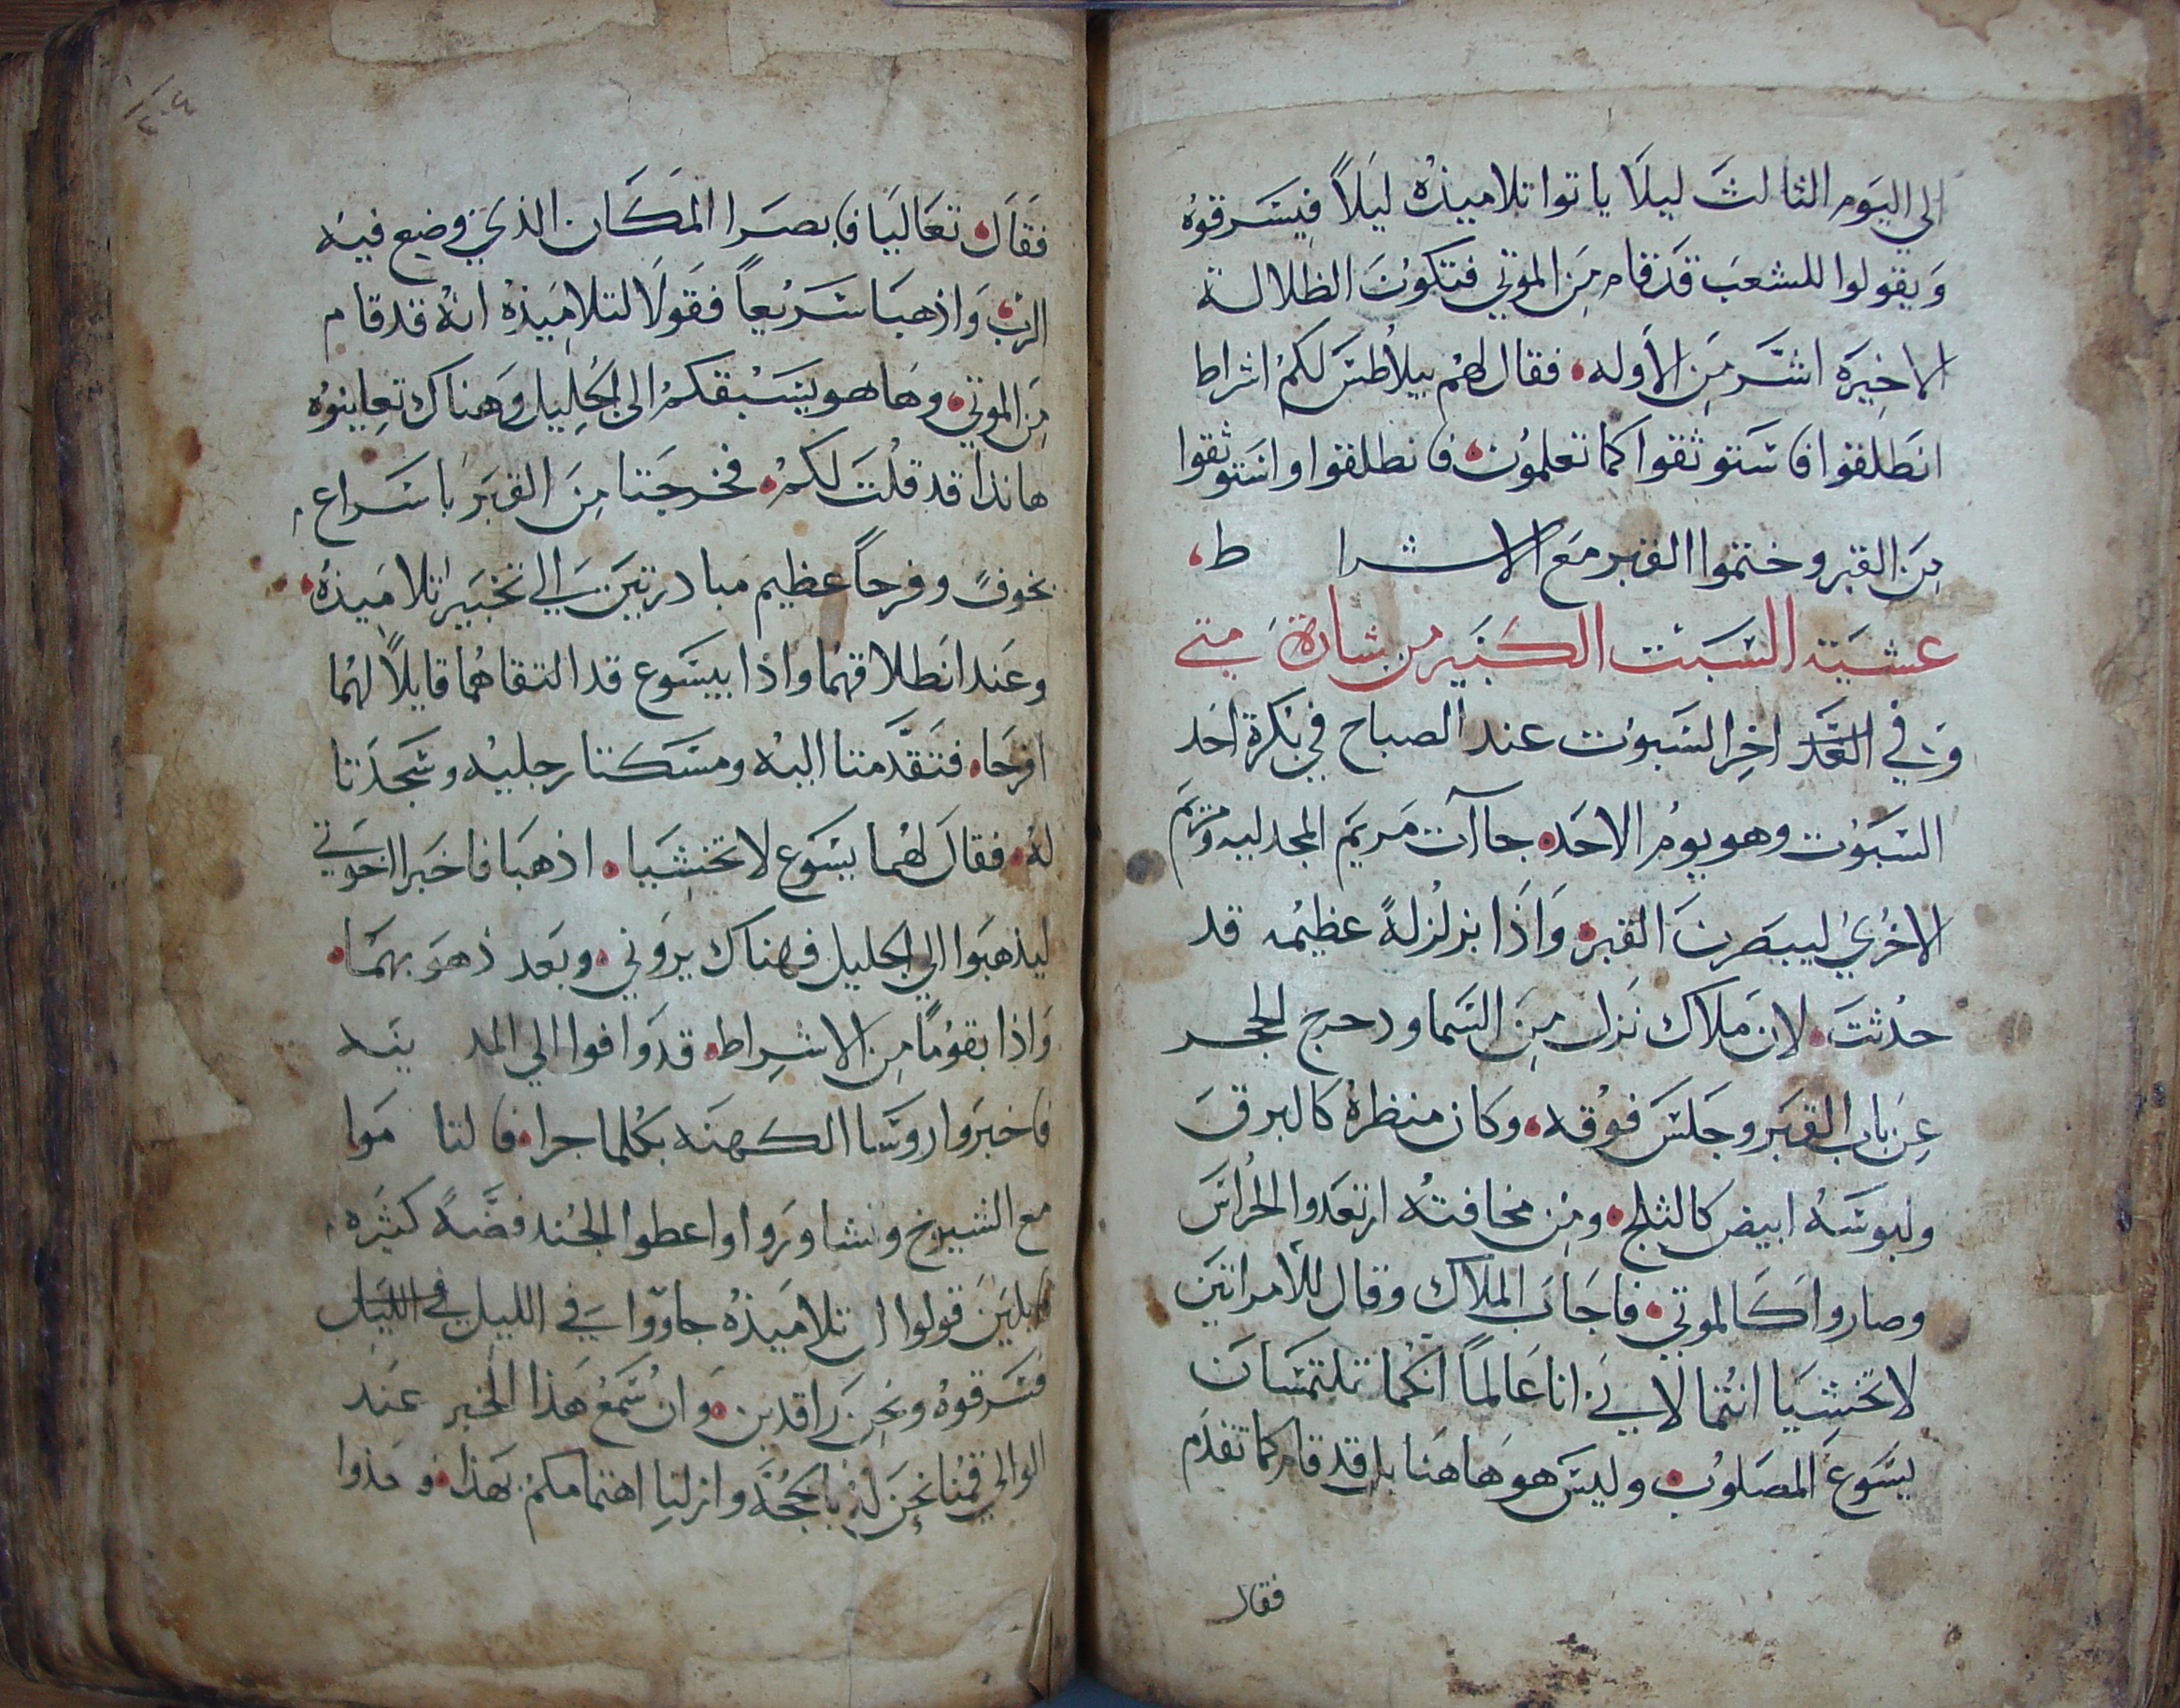 الي اليَوم الثالثَ ليلاَ ياتوا تلاميذهُ ليَلاً فيَسَرقوهُ
وَيقولوا للشعبَ قدَقام مِنَ الموتي فتكونَ الظلالة
الاخِيَره اشَّر مِنَ الأوله، فقال لهُم بيلاطسَ لكمُ اشراط
انطلقوا فاستوثقوا كما تعلمون، فانطلقوا واستوثقوا
مِنَ القبر وختموا القبر معَ الاشرا ط،
عشيَة السَبَت الكبَير من بشارة متي
وَفي الغَد اخِر السَبوت عند الصباح في بُكرة احَد
السَبَوت وهو يومُ الاحَد، جاآت مَريَم المجدليه ومَريَم
الاخُريُ ليبصَرن القبر، وَاذَا بزلزلةً عظيمه قد
حدُثتَ، لان مَلاك نَزل مِنَ السَما ودحرج الحجر
عِن باب القبَر وجَلسَ فوُقه، وكان منظرهُ كالبرق
ولبوسَهُ ابيض كالثلج، ومِن مخافتهُ ارتعَدوا الحُراسَ
وصاروا كَالموتي، فاجَابَ الملاك وقال للأمراتيَن
لاتخشِيَا انتُما لانيَ انا عَالماً انكُما تلتمسَان
يسَوعَ المصَلوُب، وليسَ هوَ هاهنا بل قد قام كما تقدَم
فقال
٢٠٤
فقَالَ، تعَاليَا فابصرَا المَكَان الذي وضِع فيه
الربُ، وَاذهبَا سَريُعاً فقولَا لتلامِيَذهُ انهُ قد قام
مِنَ الموتي، وهَا هو يسَبُقكمُ الى الجلِيل وَهناك تعِاينوُه
هانذا قد قلتَ لكمُ، فخرجَتا مِنَ القبَر باسَراع،
بخوفً وفرحاً عظيم مبادرتيَن الي تخبيَر تلاميَذهُ،
وعَند انَطلاقهَما واذا بيسَوع قد التقاهُما قايلاً لهُما
افرحَا، فتقَدَّمتا اليهُ ومسَكتا رجليُه وسَجدَتا
لهُ، فقالَ لهُما يسَوَع لاتخشِيَا، اذهبَا فاخبَرا اخوَتي
ليذهبَوا الي الجليل فهناك يروَني، وبعَد ذهوَبهمَا،
وَاذا بقومًا مِن الاشِراط، قد وَافوا الي المد ينَه
فاخبَروا روسَا الكهنَه بكُلما جرا، فالتا مَوا
مع الشيوخ وتشاورَوا واعطوا الجُند فضَّةً كثيَره،
قايليَن قولوا ان تلاميَذهُ جاووا في الليل في الليَل
فسَرقوهُ ونحِن راقدين، وَان سُمعَ هَذا الخبر عَند
الوالي قمُنا نحِنَ لهُ بالحجُّة وازلنا اهتمامكمُ بهَذا،